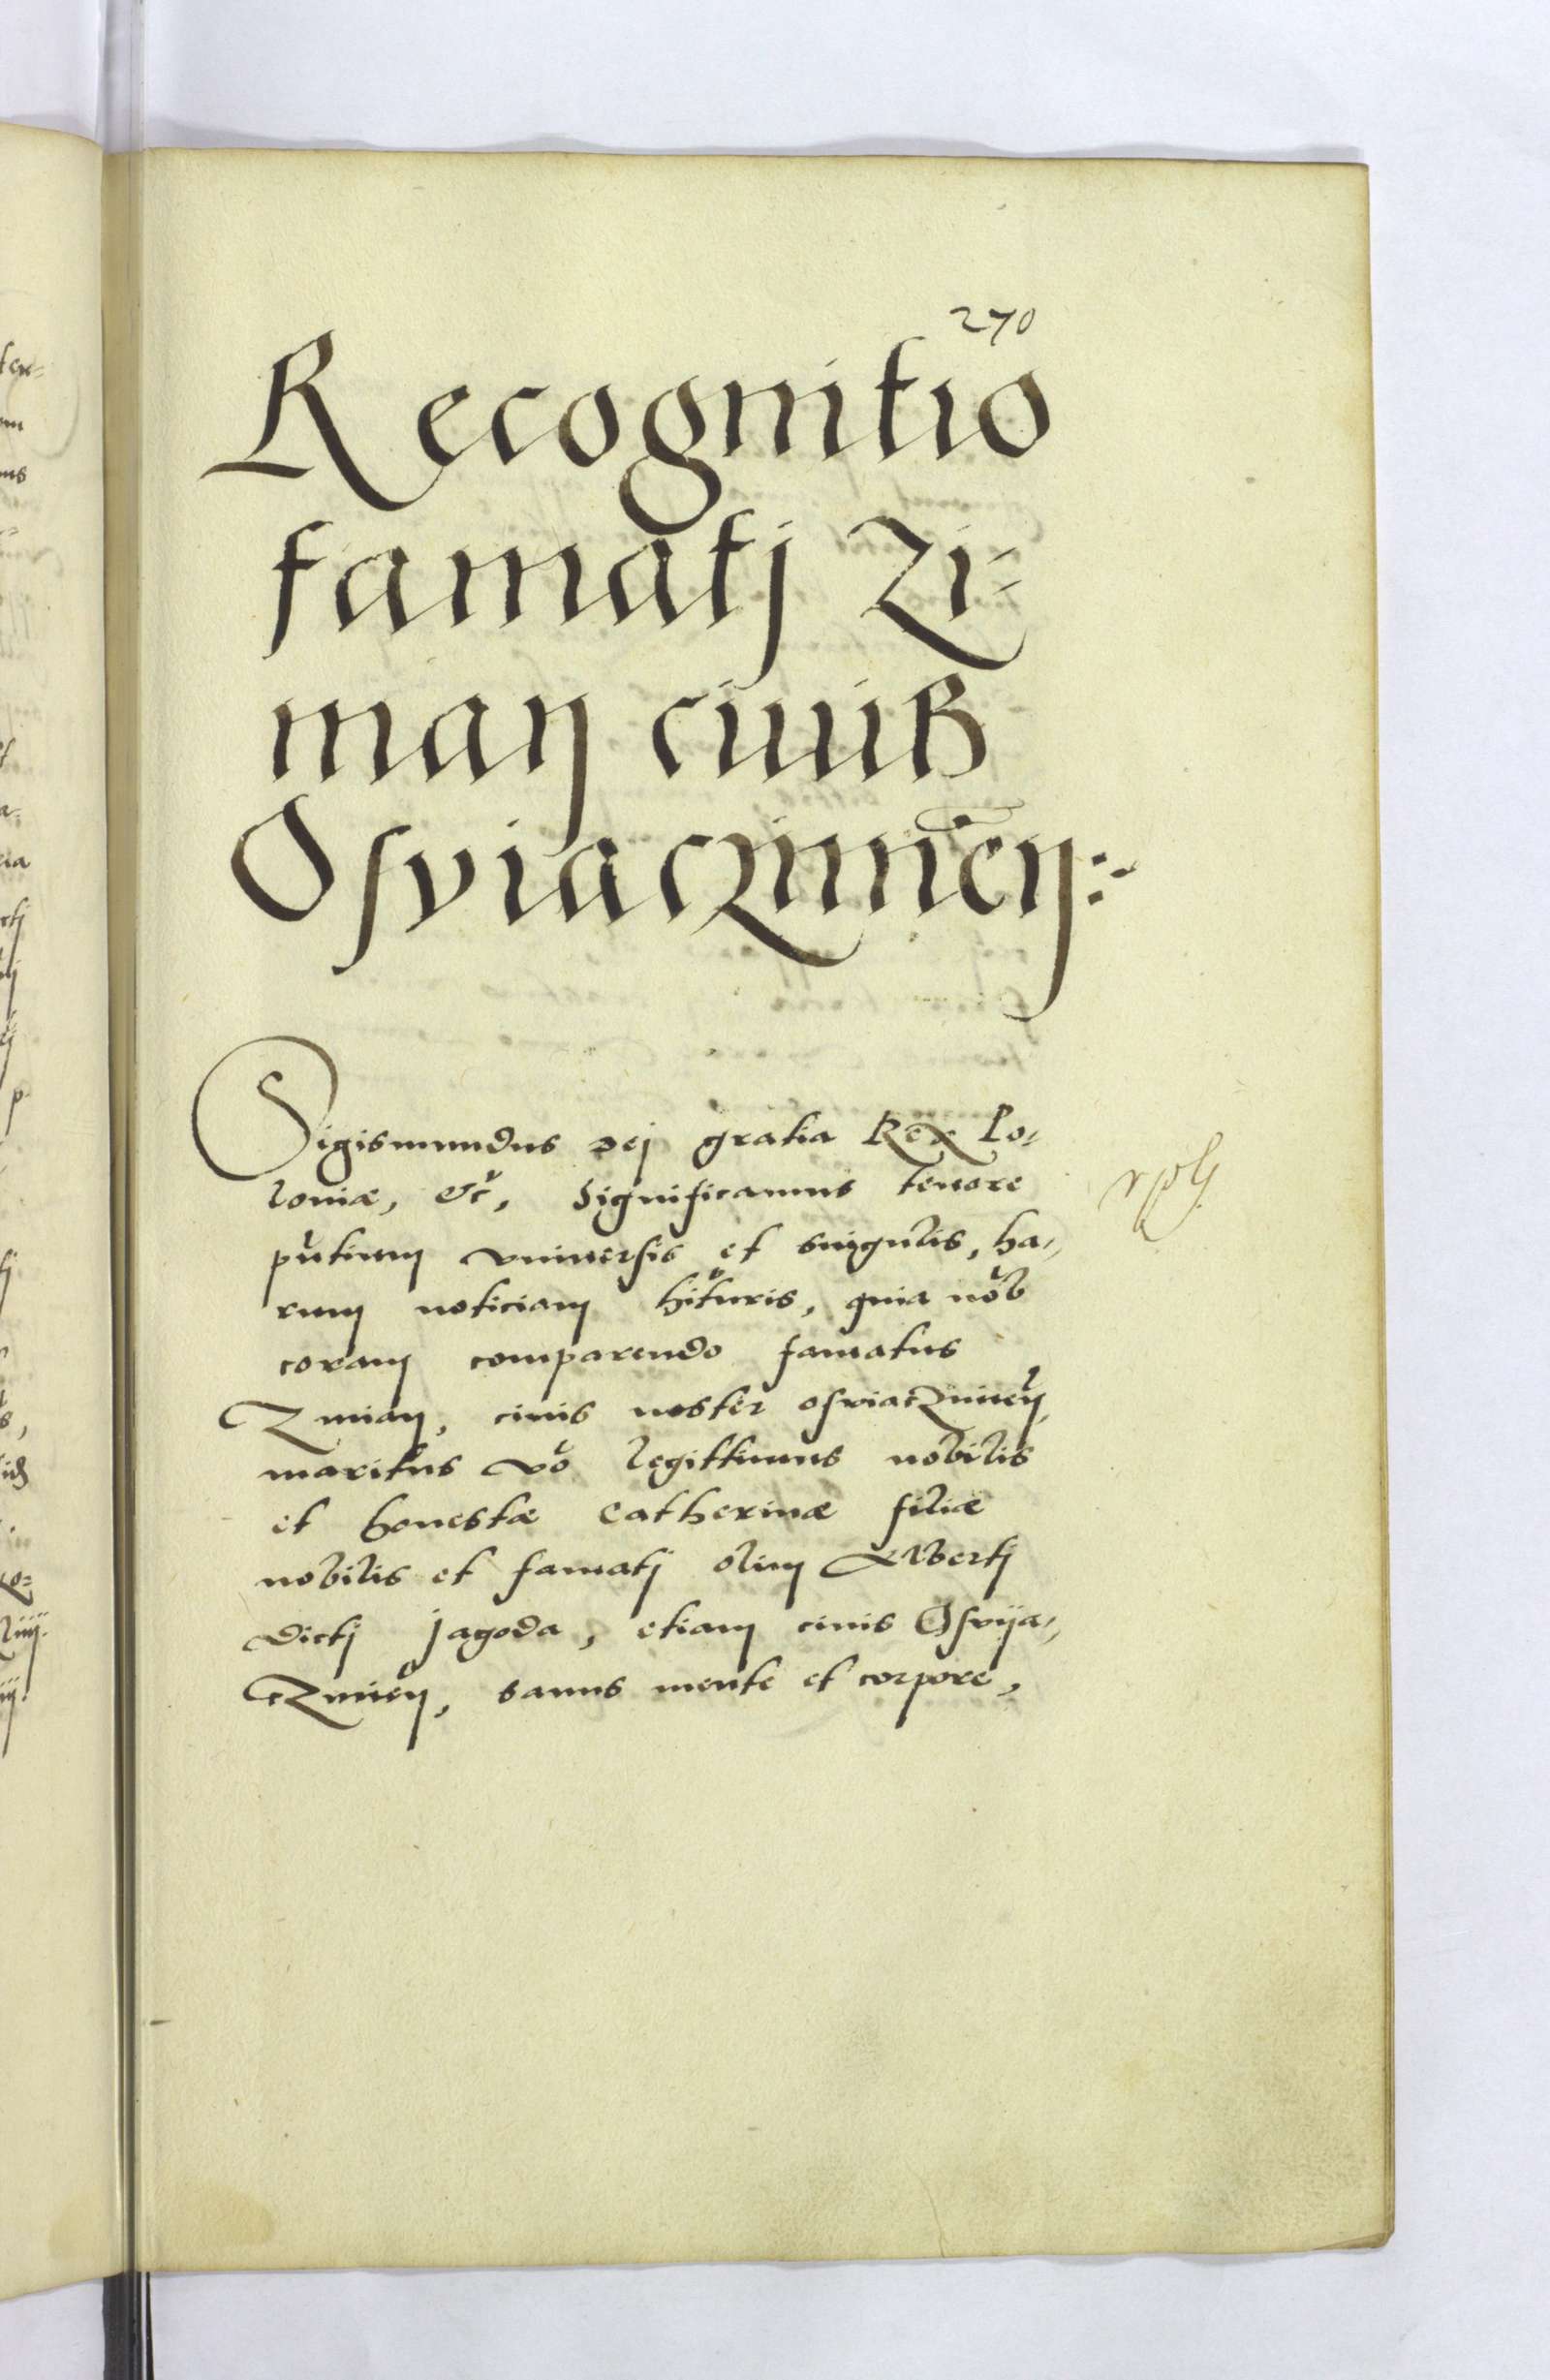 270
Recognitio
famatj Zi-
man ciuis
Osviaczimen:
Sigismundus Dej gratia Rex Po-
loniæ, etc, Significamus tenore
pñtium vniuersis et singulis, ha-
rum noticiam hituris, quia nob
coram comparendo famatus
Zmian, ciuis noster osviaczimen,
maritus vo legittimus nobilis
et honestæ Catherinæ filiæ
nobilis et famatj olim Albertj
dictj Jagoda, etiam ciuis Osvija-
czimen, sanus mente et corpore,